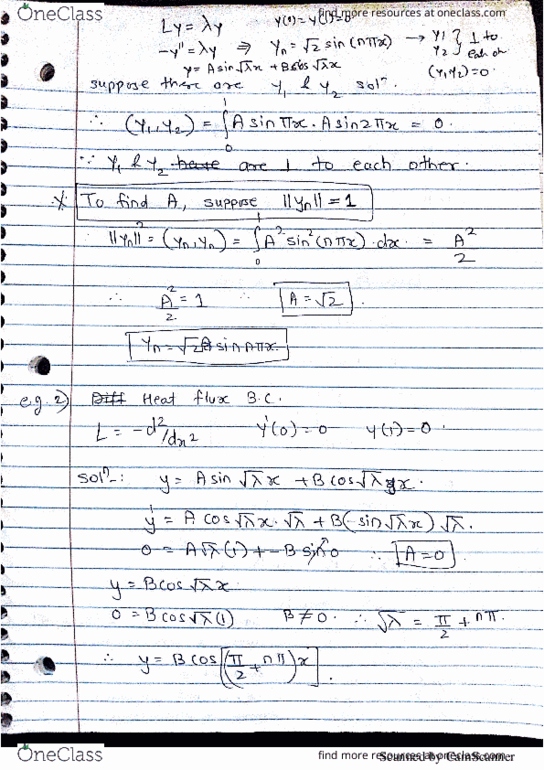 OneClass
find more resources at oneclass.com
Ly = λy
y(0) = y(1) = 0
-y'' = λy ⇒ yn = √2 sin(nπx) → y1 y2 } ⊥ to each or
y = A sin√λx + B cos√λx
(y1, y2) = 0
suppose there are y1 & y2 solⁿ.
∴ (y1, y2) = ∫₀¹ A sin πx . A sin 2πx = 0.
∵ y1 & y2 have are ⊥ to each other.
* To find A, suppose ||yn|| = 1
∴ ||yn||² = (yn, yn) = ∫₀¹ A² sin²(nπx) . dx = A²/2
∴ A²/2 = 1 ∴ A = √2 .
yn = √2 sin nπx.
e.g. 2) Diff Heat flux B.C.
L = -d²/dx² y'(0) = 0 y(1) = 0.
solⁿ: y = A sin √λx + B cos√λ x.
y' = A cos√λx. √λ + B(-sin√λx) √λ.
0 = A√λ(1) + -B sin 0 ∴ A = 0
y = B cos √λx
0 = B cos√λ(1) B ≠ 0 ∴ √λ = π/2 + nπ.
∴ y = B cos[(π/2 + nπ)x] .
OneClass
find more resources at oneclass.com
Scanned by CamScanner